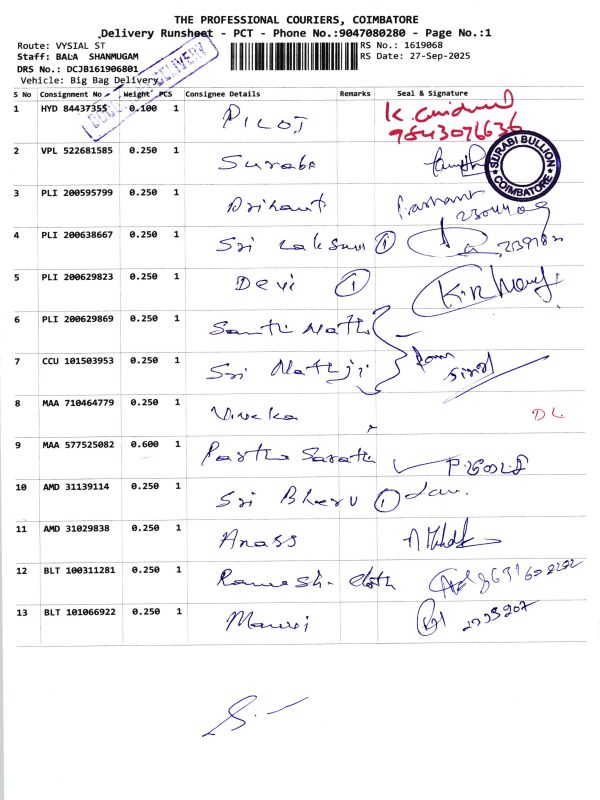 THE PROFESSIONAL COURIERS, COIMBATORE
Delivery Runsheet - PCT - Phone No.:9047080280 - Page No.:1
Route: VYSIAL ST RS No.: 1619068
Staff: BALA SHANMUGAM RS Date: 27-Sep-2025
DRS No.: DCJB161906801
Vehicle: Big Bag Delivery
DELIVERY
S No Consignment No Weight PCS Consignee Details Remarks Seal & Signature
1 HYD 84437355 0.100 1 PILOT
9843076636
2 VPL 522681585 0.250 1 Surabi
SURABI BULLION COIMBATORE
3 PLI 200595799 0.250 1 Arihant Prashant
4 PLI 200638667 0.250 1 Sri Laksmi 1
5 PLI 200629823 0.250 1 Devi 1
6 PLI 200629869 0.250 1 Santi Nath
7 CCU 101503953 0.250 1 Sri Nathji
8 MAA 710464779 0.250 1 Viveka DL
9 MAA 577525082 0.600 1 Partha Sarathi
10 AMD 31139114 0.250 1 Sri Bheru 1
11 AMD 31029838 0.250 1 Anass
12 BLT 100311281 0.250 1 Ramesh cloth
13 BLT 101066922 0.250 1